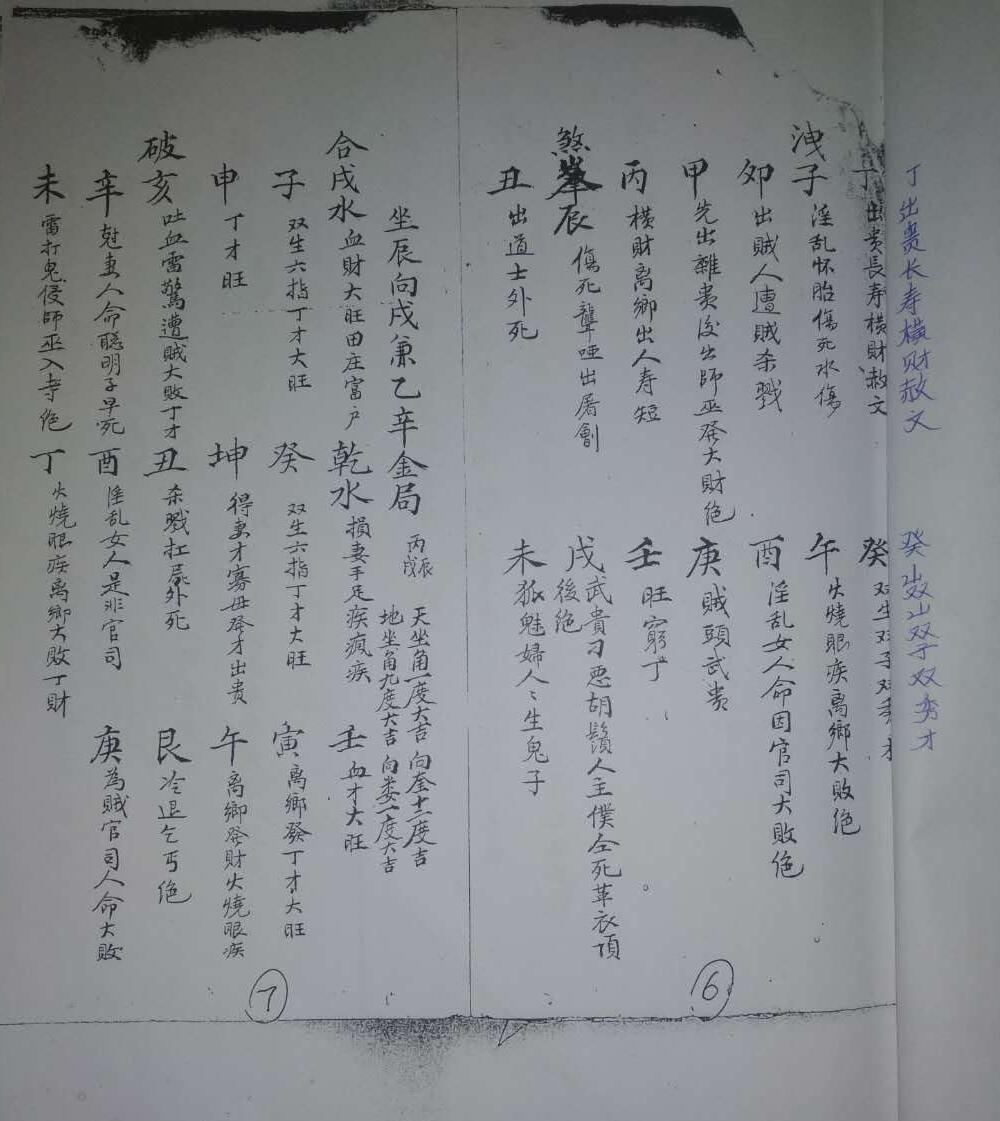 丁 出贵长寿横财赦文
癸 出双山双子双秀才
丁 出贵長寿横財赦文
癸 双生双子双秀才
洩子 淫乱怀胎傷死水傷
午 火燒眼疾离鄉大敗绝
卯 出贼人遭贼杀戮
酉 淫乱女人命因官司大敗绝
甲 先出雜贵後出師巫發大財绝
庚 賊頭武贵
丙 横財离鄉出人寿短
壬 旺窮丁
煞 辰 傷死聾哑出屠劊
戌 武貴刁恶胡鬚人主僕仝死革衣頂後绝
丑 出道士外死
未 狐魅婦人人生鬼子
⑥
坐辰向戌兼乙辛金局 丙辰 丙戌 天坐角一度大吉 向奎十二度吉
地坐角九度大吉 向娄一度大吉
合戌水 血財大旺田庄富户
乾水 損妻手足疾瘋疾
壬 血才大旺
子 双生六指丁才大旺
癸 双生六指丁才大旺
寅 离鄉發丁才大旺
申 丁才旺
坤 得妻才寡母發才出贵
午 离鄉發財火燒眼疾
破亥 吐血雷驚遭贼大敗丁才
丑 杀戮扛屍外死
艮 冷退乞丐绝
辛 尅妻人命聪明子早死
酉 淫乱女人是非官司
庚 為賊官司人命大敗
未 雷打鬼侵師巫入寺绝
丁 火燒眼疾离鄉大敗丁財
⑦